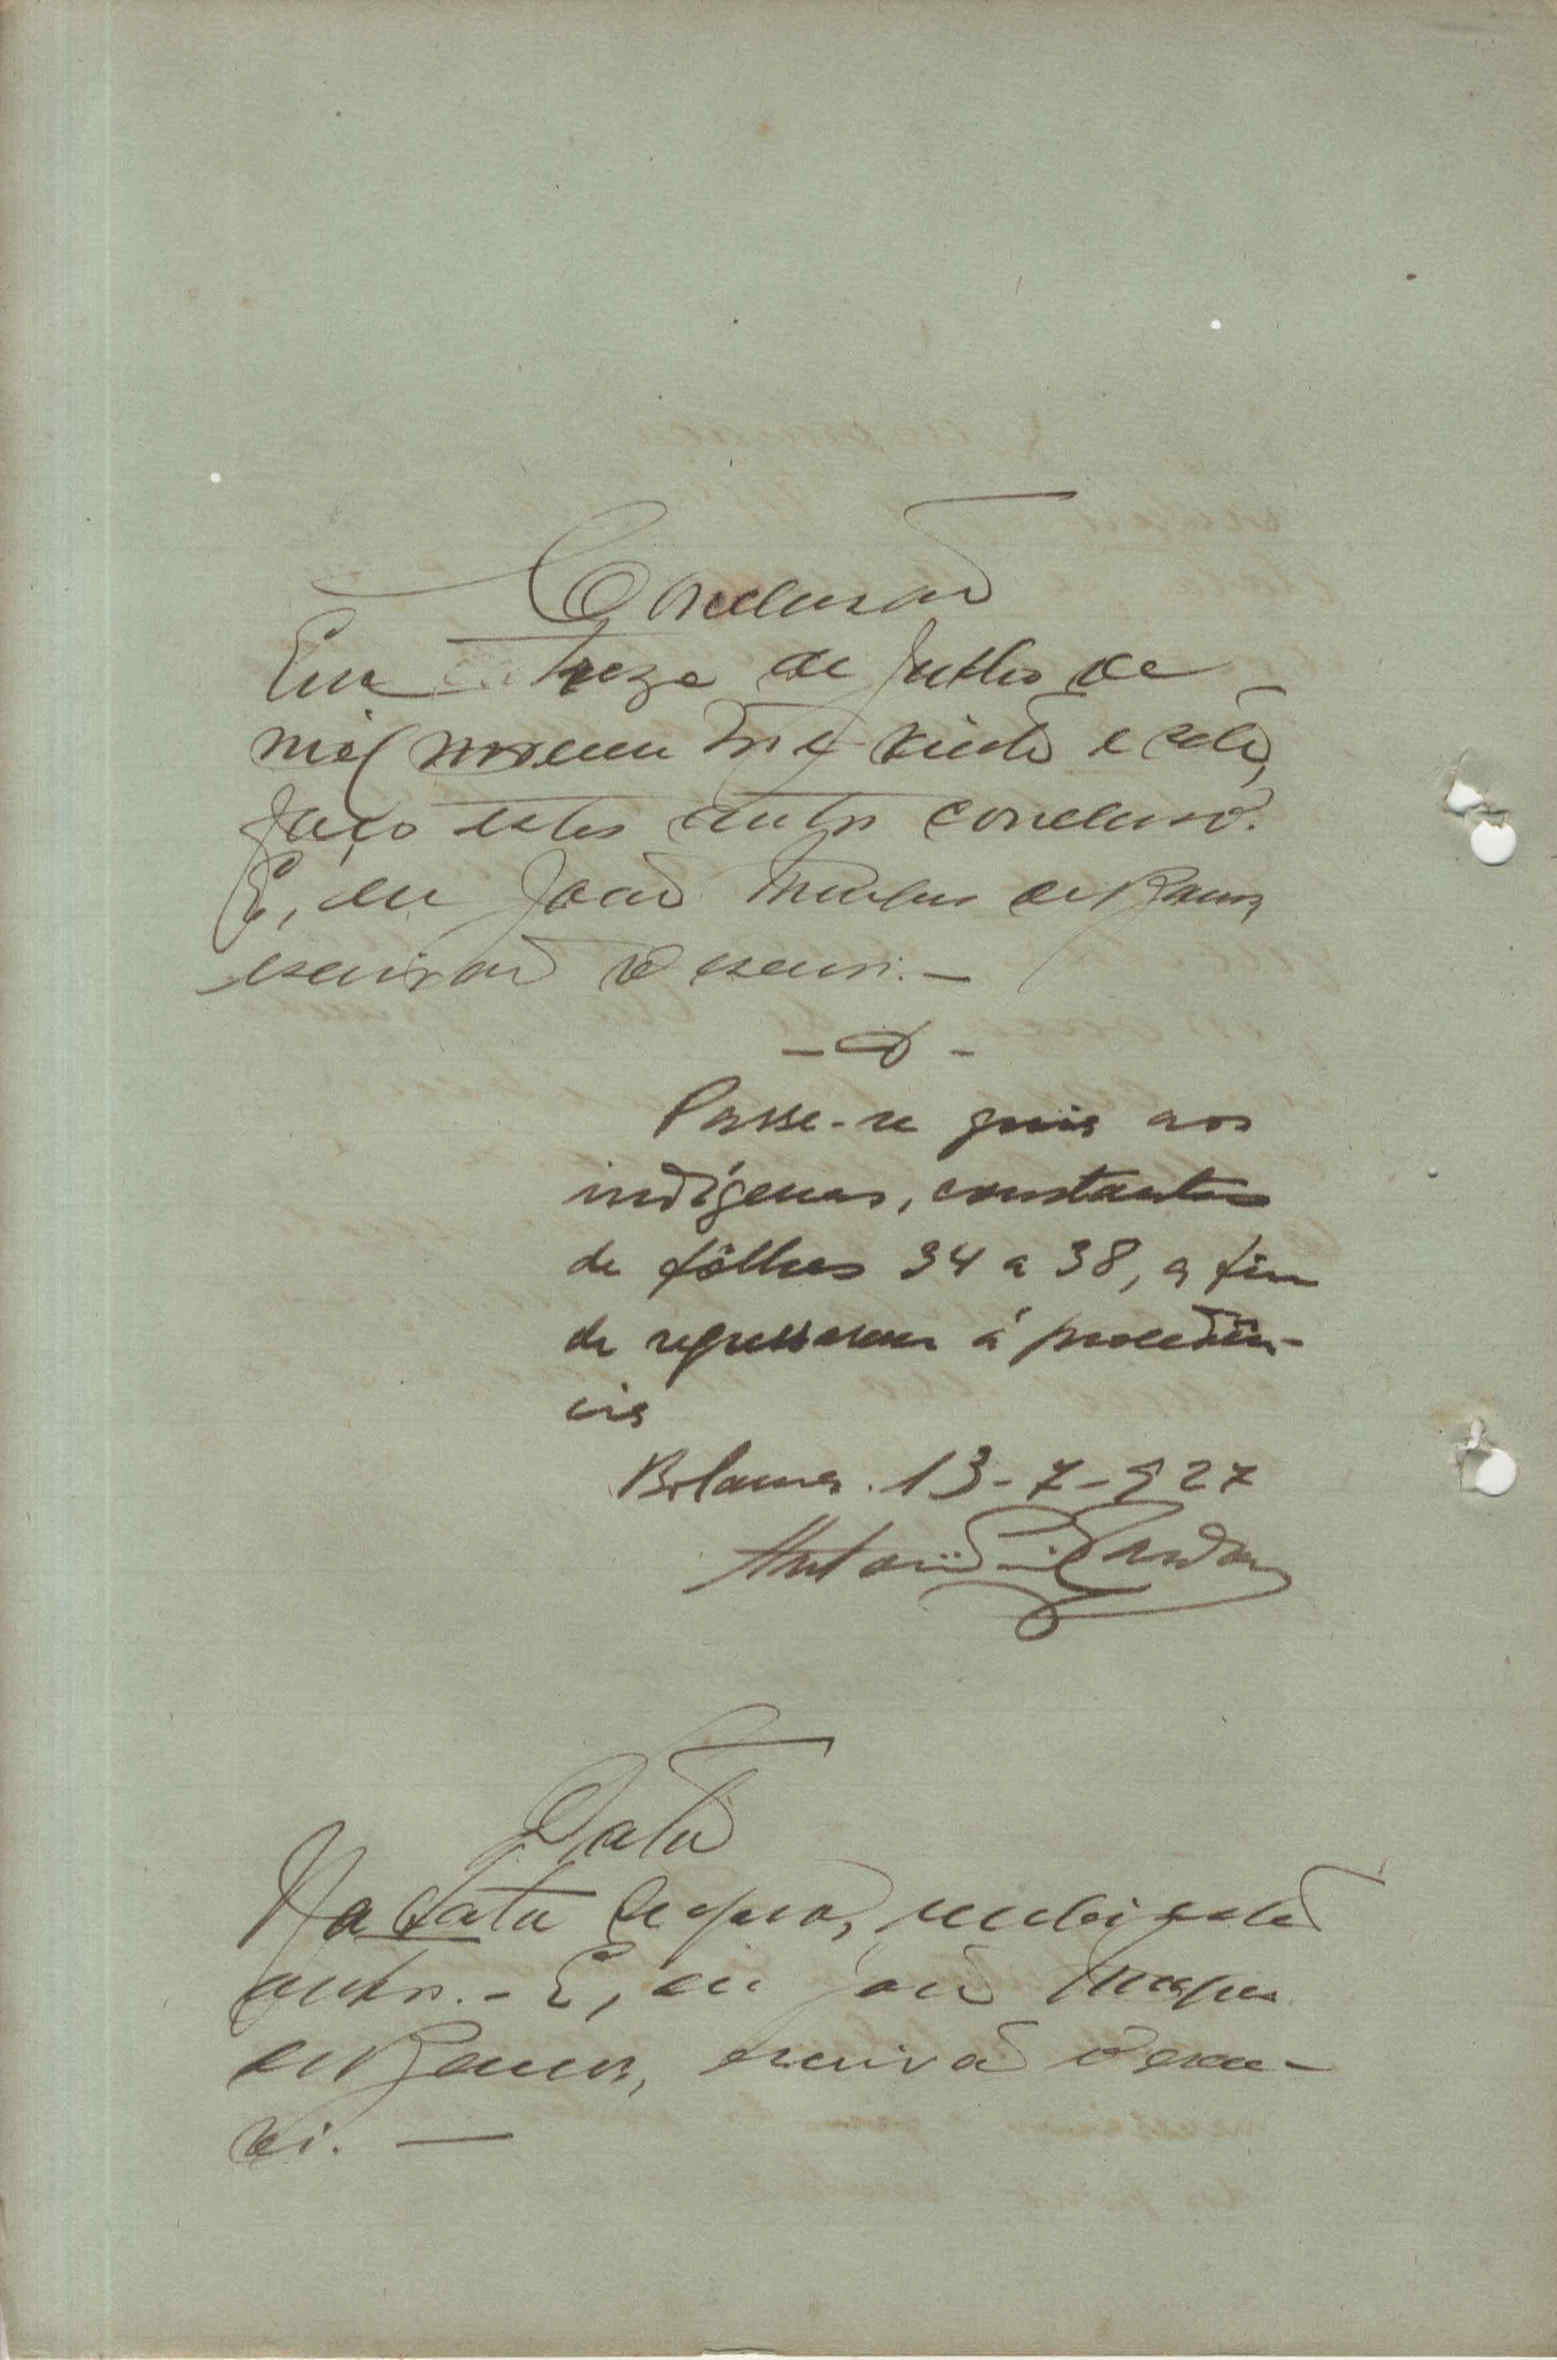 Conclusão
Em treze de Julho de
mil novecentos e vinte e sete,
faço estes autos conclusos.
E, eu João de Ramos,
escrivão o escrevi. —
Passe-se guia aos
indígenas, constantes
de fôlhas 34 a 38, a fim
de regressarem á procedên-
cia
Bolama. 13-7-927
António Cardoso
Data
Na data supra, recebi estes
autos. - E, eu João
de Ramos, escrivão o escre-
vi. —